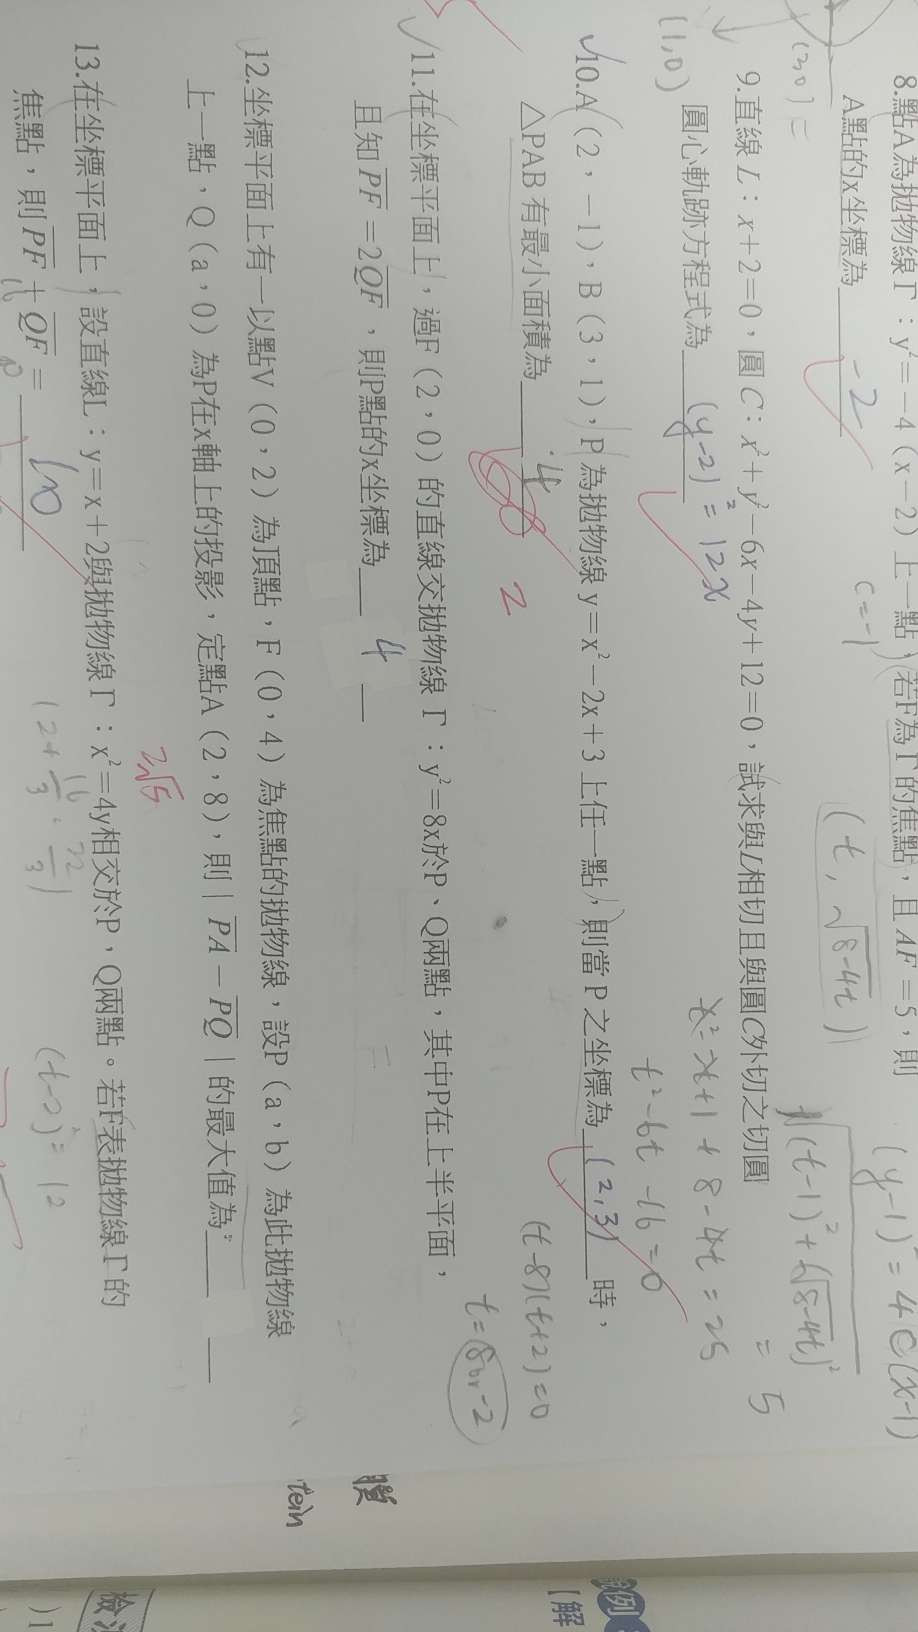 8.點A為拋物線Γ：y²=-4（x-2）上一點，若F為Γ的焦點，且AF=5，則
A點的x坐標為 -2
c=-1
(y-1)²=4c(x-1)
(t, √8-4t)
√(t-1)²+(√8-4t)² = 5
(1,0)
9.直線L：x+2=0，圓C：x²+y²-6x-4y+12=0，試求與L相切且與圓C外切之切圓
圓心軌跡方程式為 (y-2)²=12x
t²-6t-16=0
(t-8)(t+2)=0
t=8or-2
10.A（2，-1），B（3，1），P為拋物線y=x²-2x+3上任一點，則當P之坐標為 (2,3) 時，
△PAB有最小面積為 4
2
11.在坐標平面上，過F（2，0）的直線交拋物線Γ：y²=8x於P、Q兩點，其中P在上半平面，
且知PF=2QF，則P點的x坐標為 4
12.坐標平面上有一以點V（0，2）為頂點，F（0，4）為焦點的拋物線，設P（a，b）為此拋物線
上一點，Q（a，0）為P在x軸上的投影，定點A（2，8），則｜PA-PQ｜的最大值為
2√5
13.在坐標平面上，設直線L：y=x+2與拋物線Γ：x²=4y相交於P，Q兩點。若F表拋物線Γ的
焦點，則PF+QF= 10
(t-2)²=12
檢
例
【解